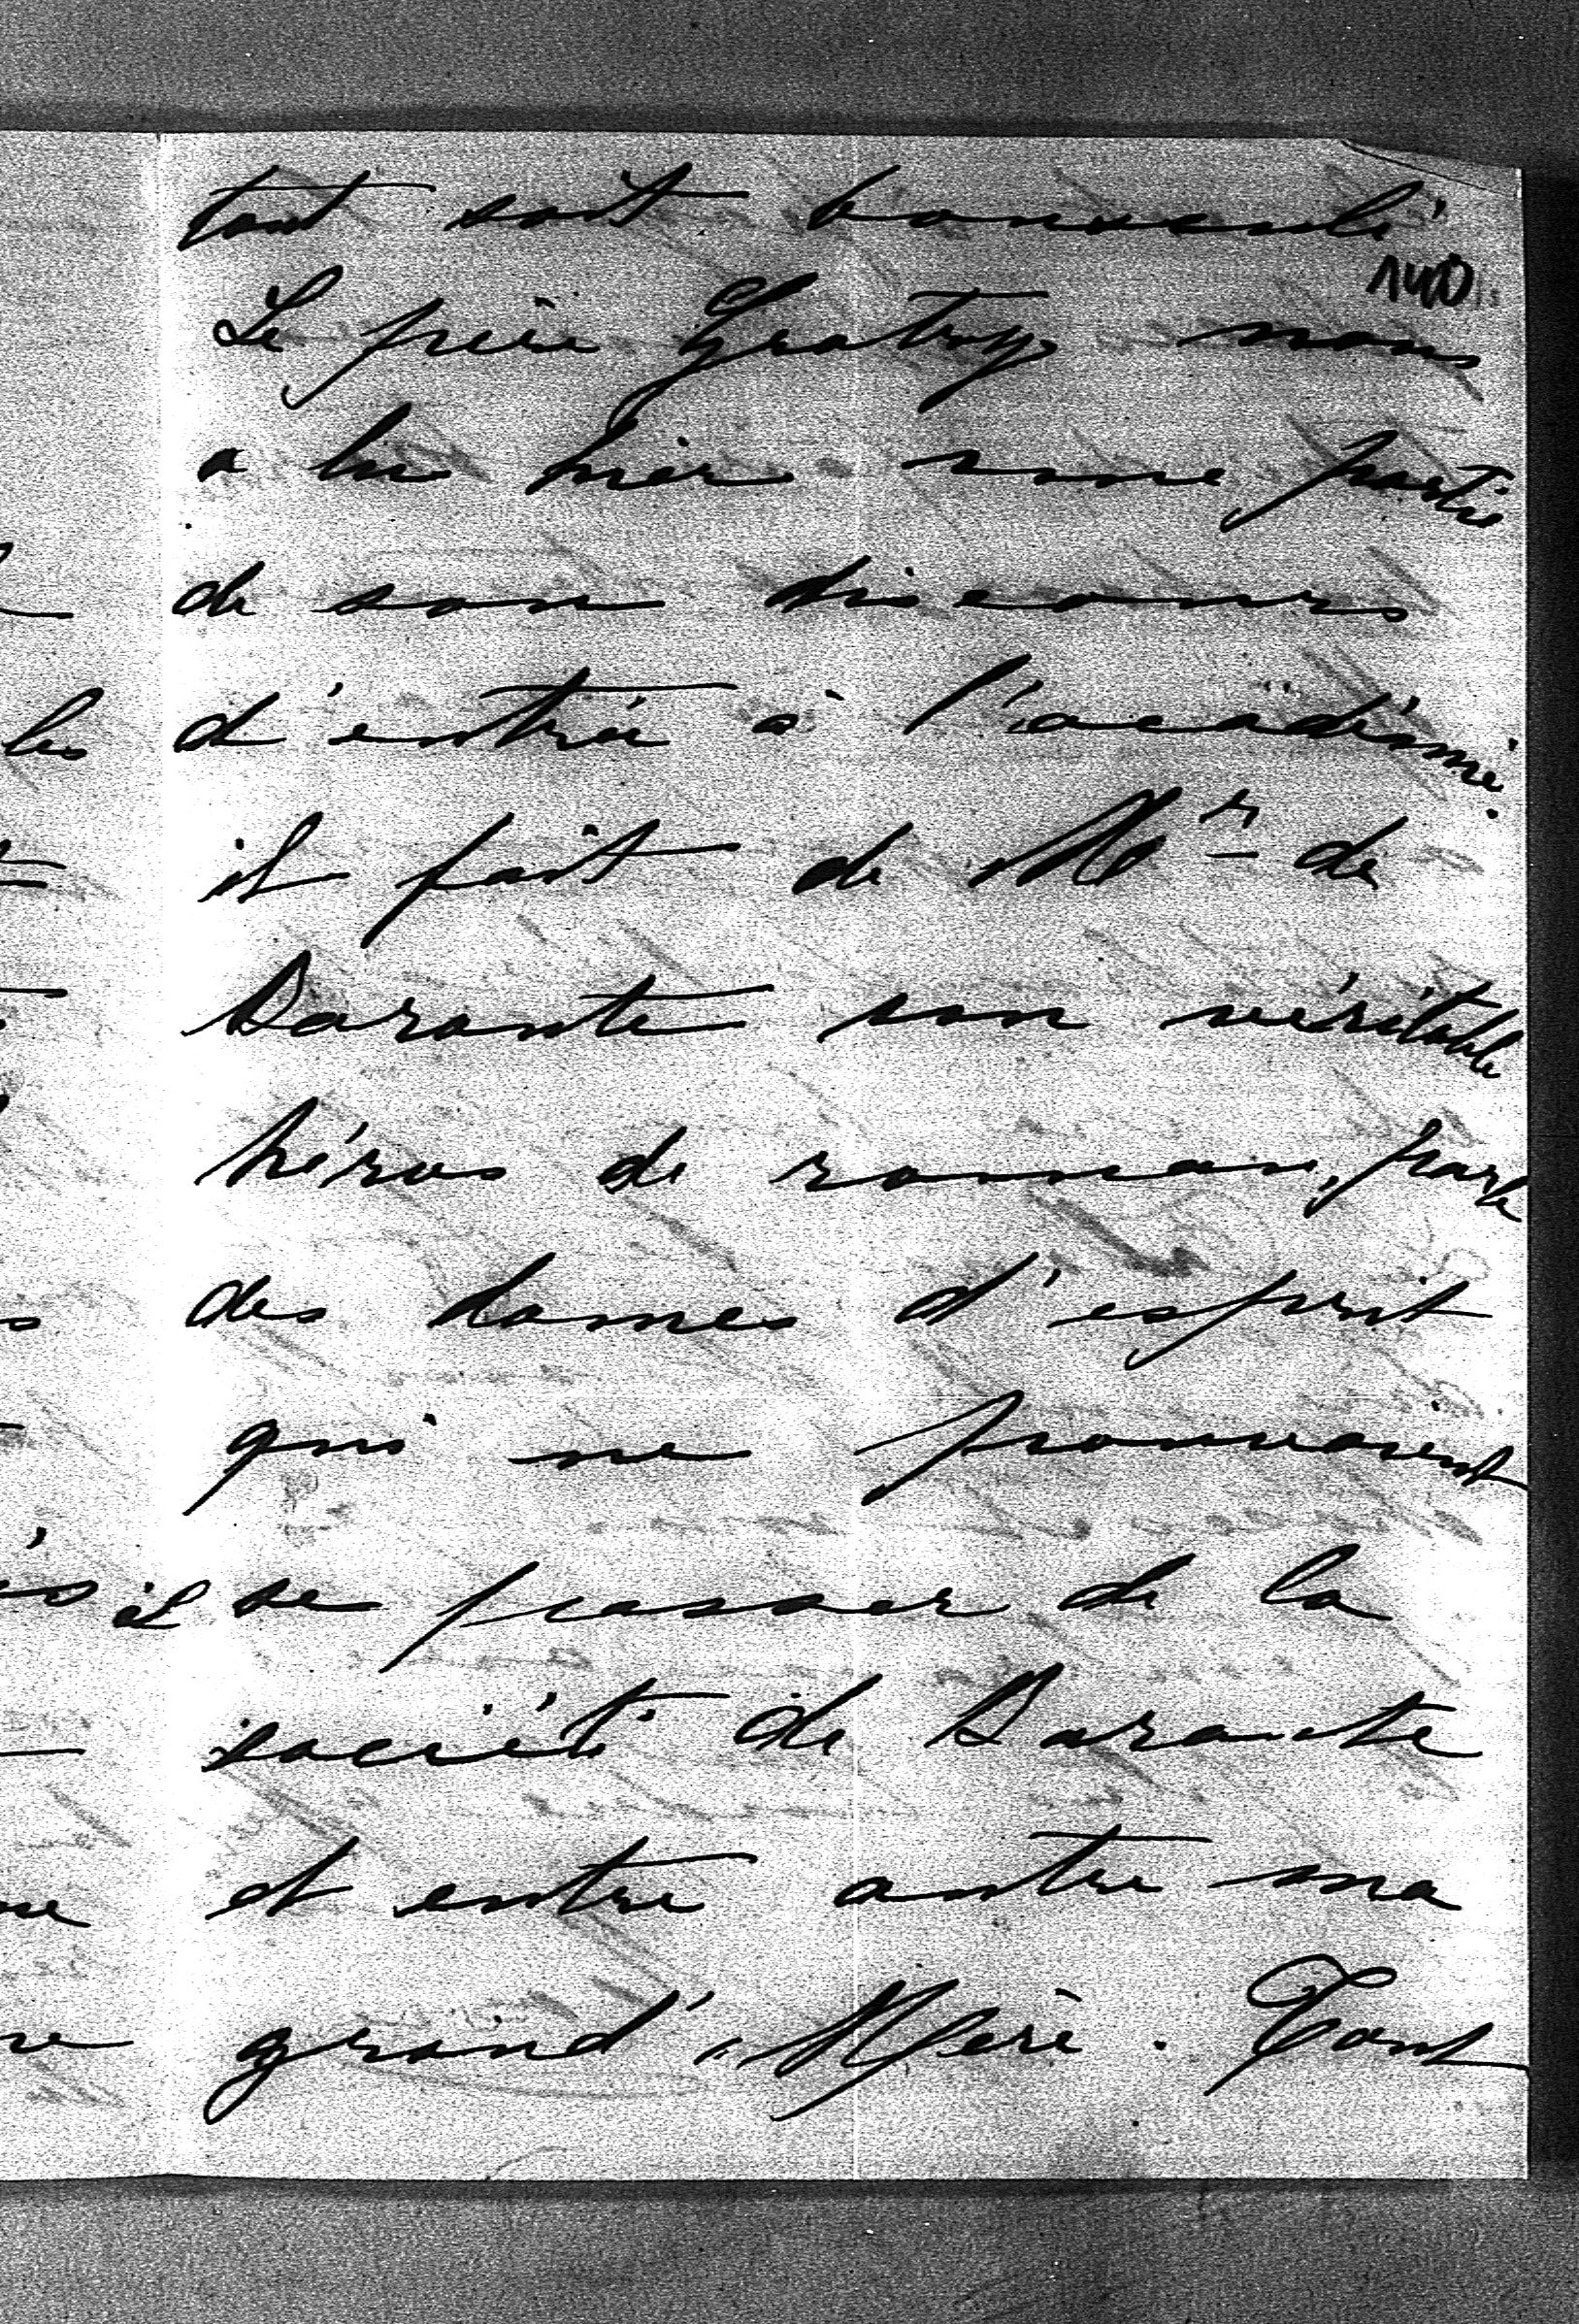 tout soit bouneulé
1400
Le père Gratry nous
a lu hier une partie
de son discours
d'entrée à l'académie.
il fait de Mr de
Barante un véritable
héros de roman, parle
des dames d'esprit
qui ne pouvaient
se passer de la
société de Barante
et entre autre ma
grand'Mère. Tout